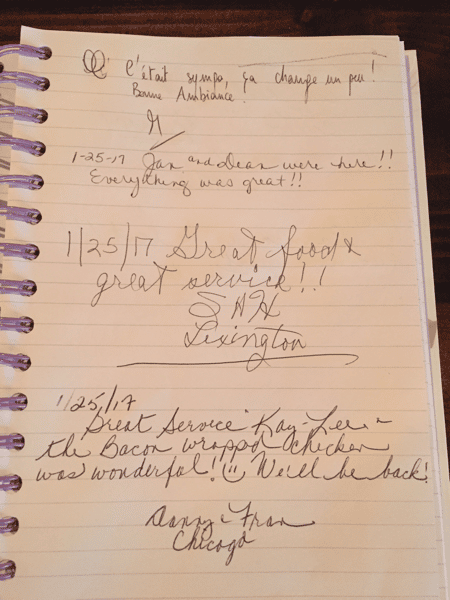 C'était sympa, ça change un peu!
Bonne Ambiance.
1-25-17 Jan and Dean were here!!
Everything was great!!
1/25/17 Great food &
great service!!
SAH
Lexington
1/25/17
Great Service Kay-Lee -
the Bacon wrapped chicken
was wonderful! We'll be back!
Danny & Fran
Chicago